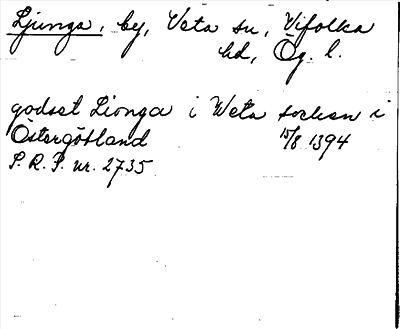 Ljunga, by, Veta sn, Vifolka
hd, Ög. l.
godset Lionga i Weta socken i
Östergötland 15/8 1394
S. R. P. nr. 2735